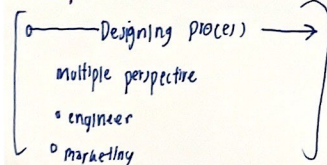 Designing process
multiple perspective
• engineer
• marketing